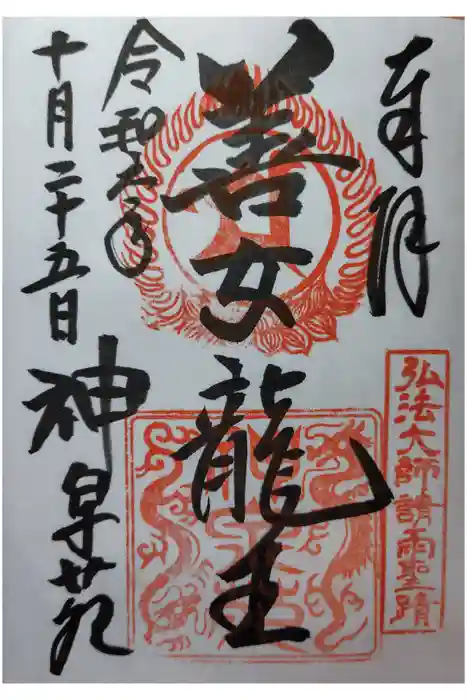 奉拝
弘法大師請雨聖蹟
善女龍王
令和二年
十月二十五日
神泉苑